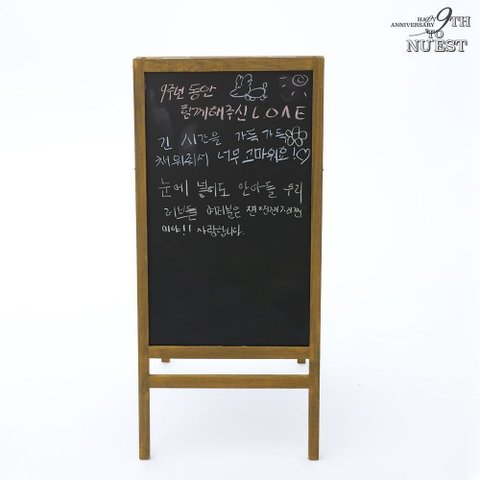 HAPPY 9TH
ANNIVERSARY TO
NU'EST
9주년 동안
함께해주신 LOVE
긴 시간을 가득 가득
채워줘서 너무 고마워요!
눈에 넣어도 안아플 우리
러브들 여러분은
이야!! 사랑합니다.